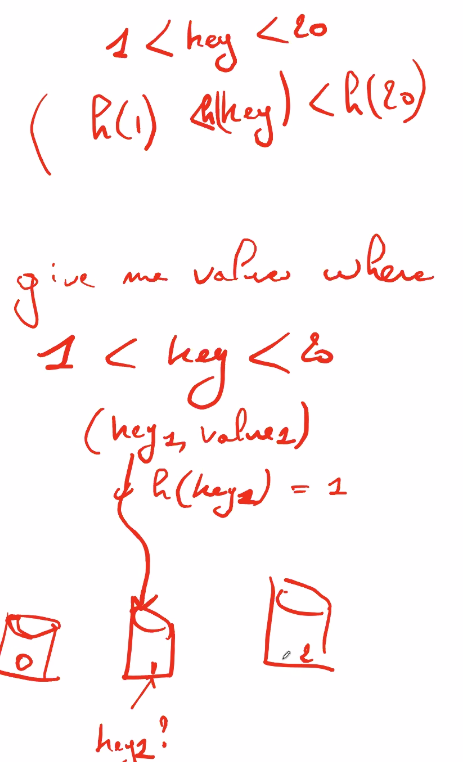 1 < key < 20
( h(1) <h(key) < h(20)
give me values where
1 < key < 20
(key1, value1)
h(key1) = 1
0 1 2
key1?